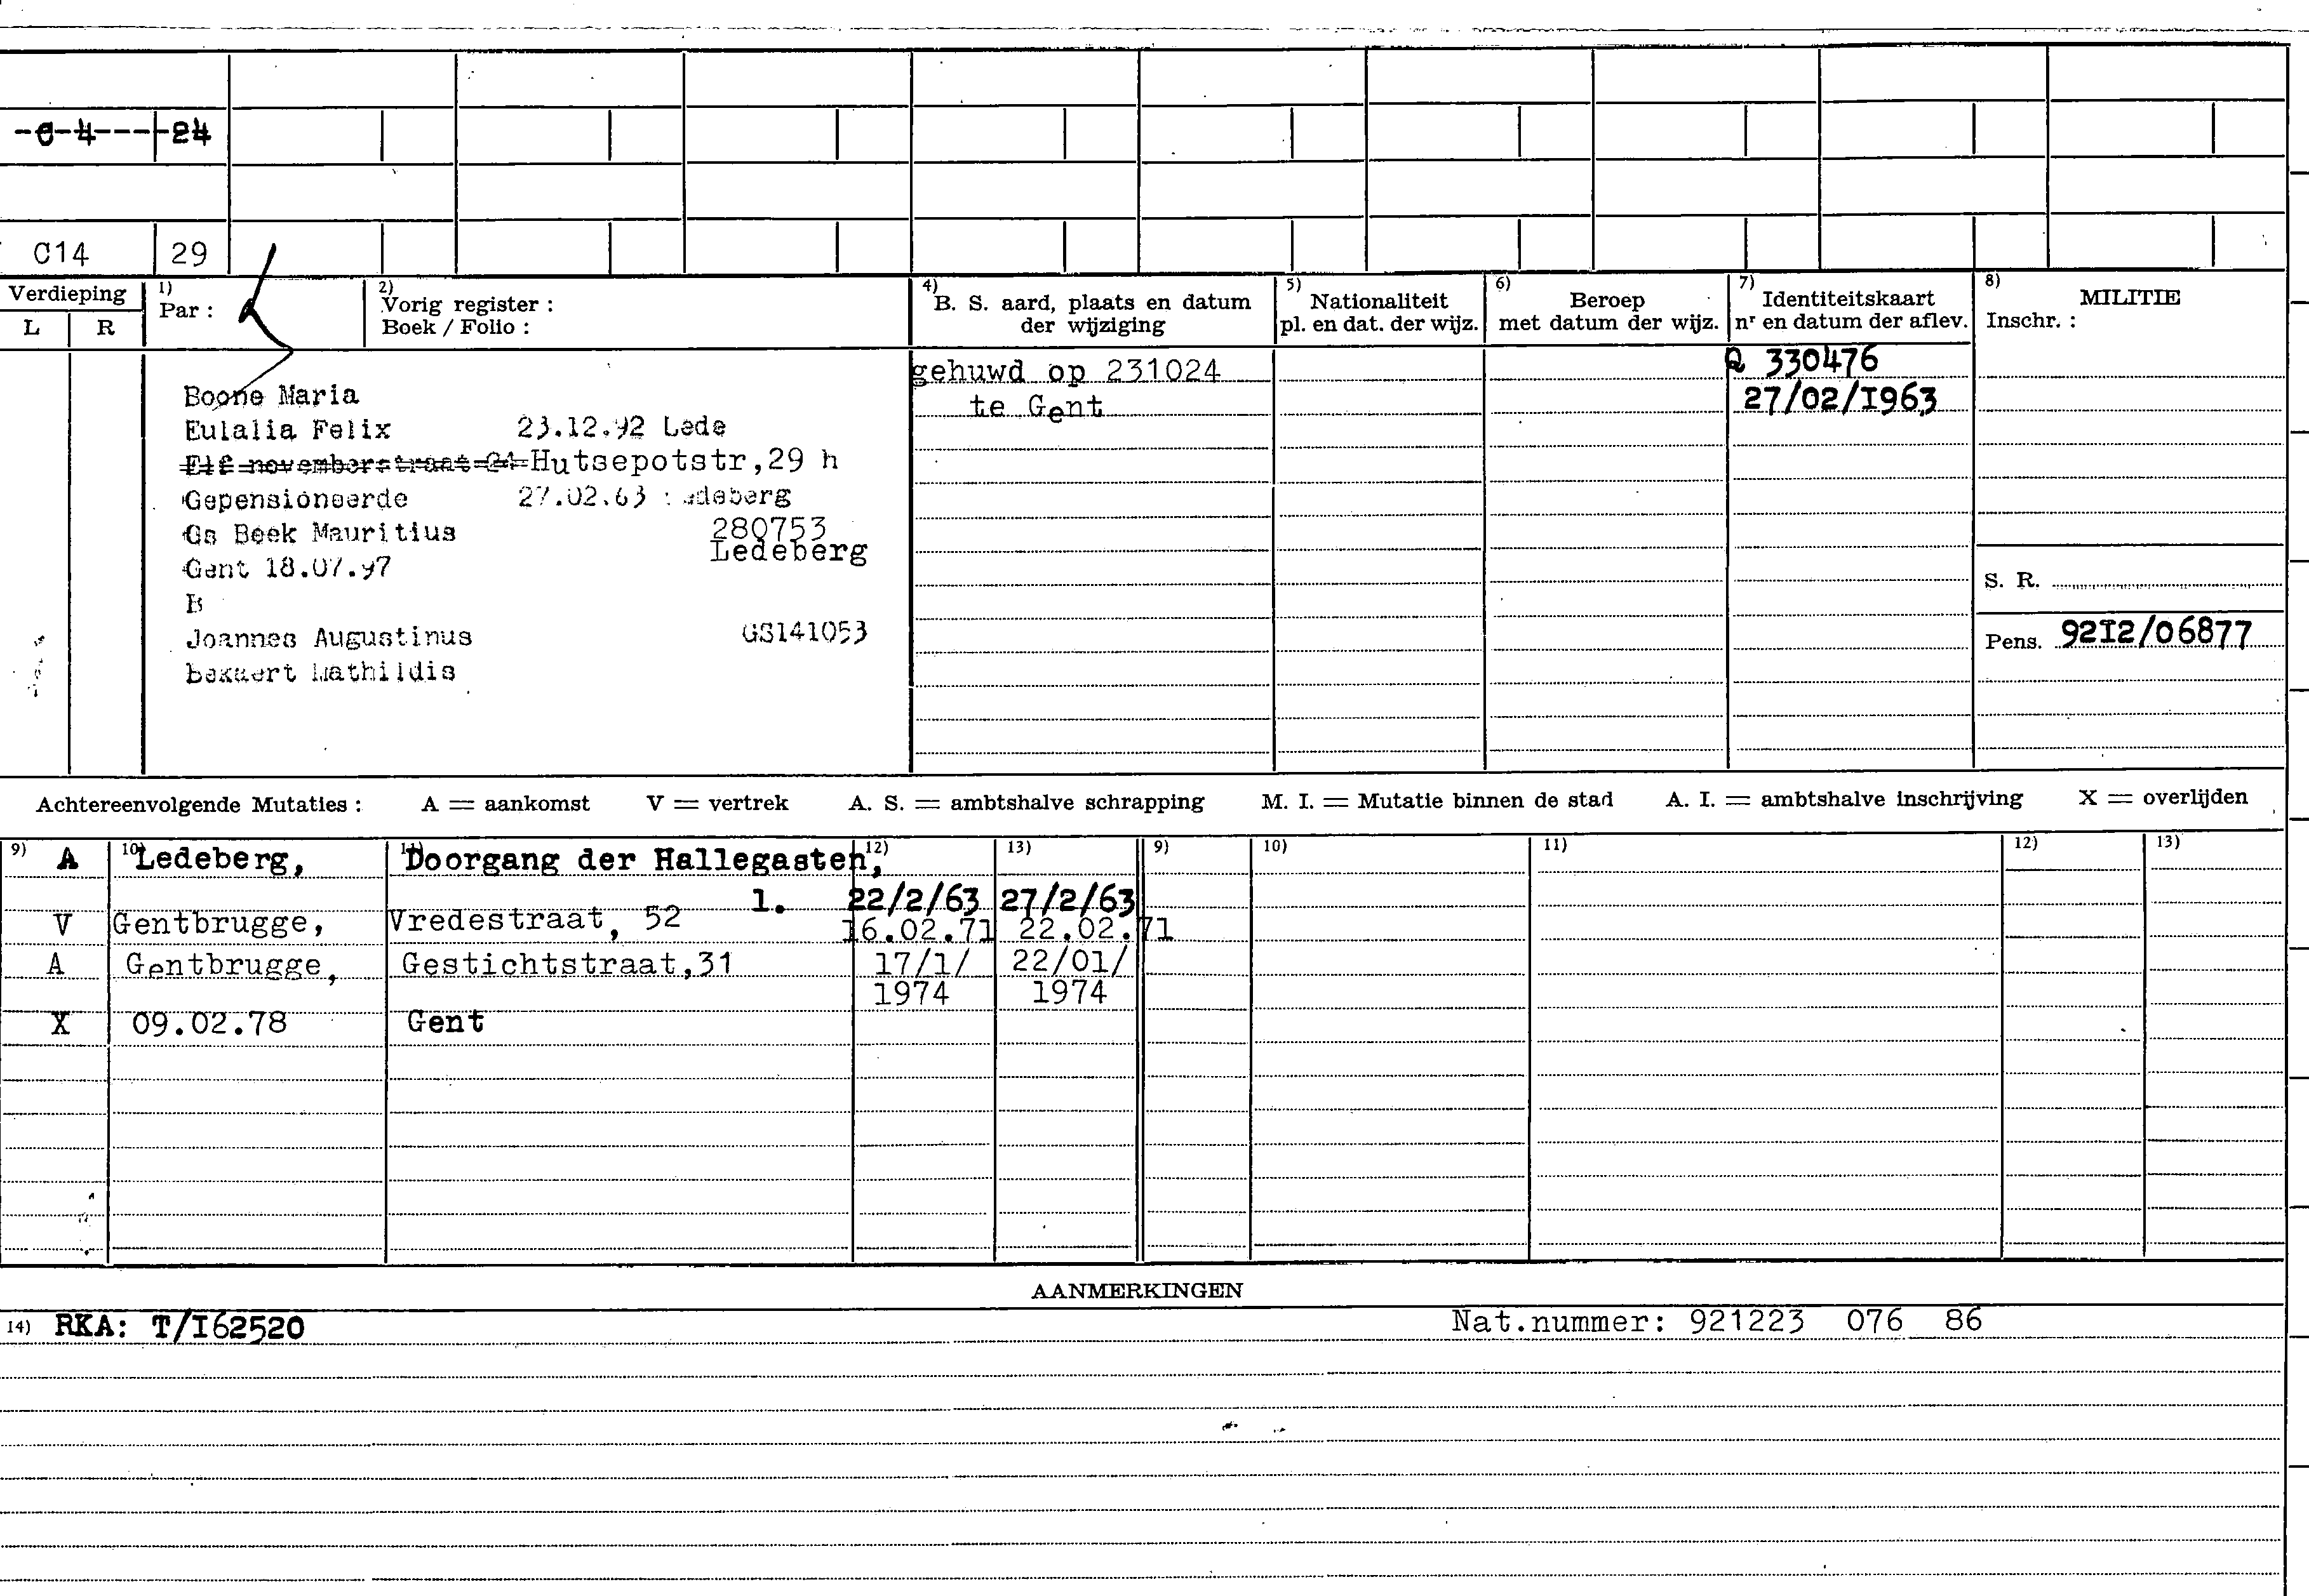 -C-4----24
C14 29
Verdieping
L R
1) Par :
2) Vorig register :
Boek / Folio :
4) B. S. aard, plaats en datum
der wijziging
5) Nationaliteit
pl. en dat. der wijz.
6) Beroep
met datum der wijz.
7) Identiteitskaart
nr en datum der aflev.
8) MILITIE
Inschr. :
Boone Maria
Eulalia Felix 23.12.92 Lede
Elf novemberstraat 24 Hutsepotstr,29 h
Gepensioneerde 27.02.63 Ledeberg
Gs Beek Mauritius 280753
Gent 18.07.97 Ledeberg
B
Joannes Augustinus GS141053
Bekaert Mathildis
gehuwd op 231024
te Gent
Q 330476
27/02/I963
S. R.
Pens. 92I2/06877
Achtereenvolgende Mutaties : A = aankomst V = vertrek A. S. = ambtshalve schrapping M. I. = Mutatie binnen de stad A. I. = ambtshalve inschrijving X = overlijden
9) 10) 11) 12) 13) 9) 10) 11) 12) 13)
A Ledeberg, Doorgang der Hallegasten,
1. 22/2/63 27/2/63
V Gentbrugge, Vredestraat, 52 16.02.71 22.02.71
A Gentbrugge, Gestichtstraat,31 17/1/ 22/01/
1974 1974
X 09.02.78 Gent
AANMERKINGEN
14) RKA: T/I62520 Nat.nummer: 921223 076 86